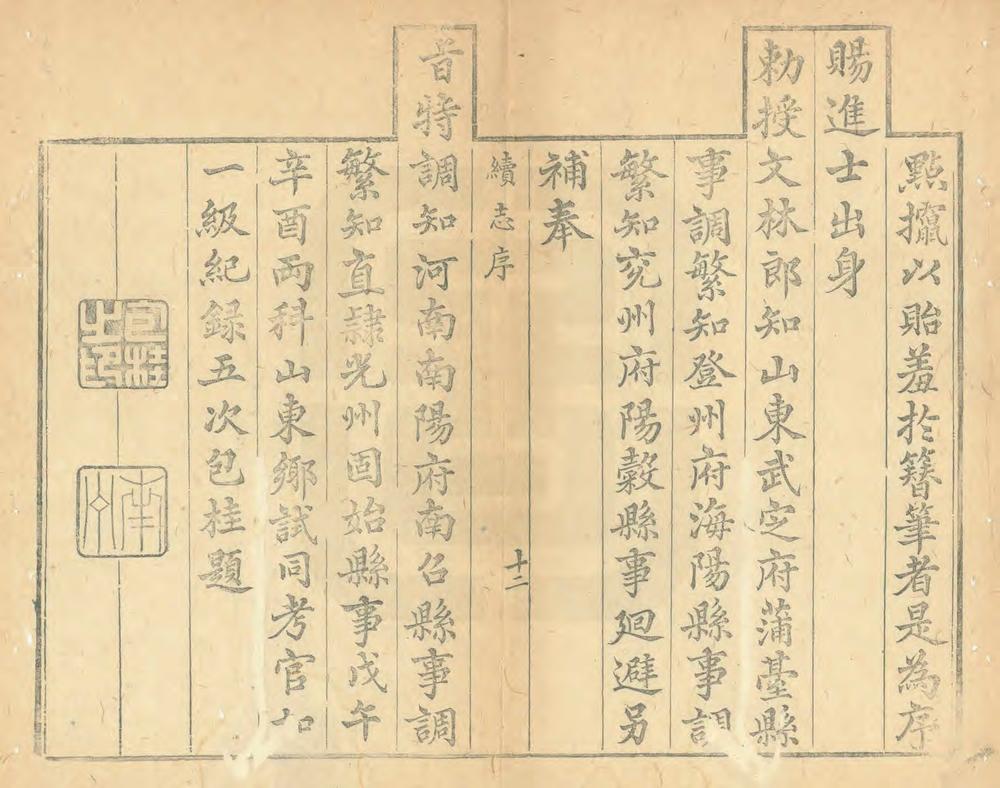 點攛以貽羞於簪筆者是為序
賜進士出身
勅授文林郎知山東武定府蒲臺縣
事調繁知登州府海陽縣事調
繁知兖州府陽穀縣事廻避另
補奉
續志序 十二
旨特調知河南南陽府南召縣事調
繁知直隸光州固始縣事戊午
辛酉两科山東鄉試同考官加
一級紀録五次包桂題
包桂之印